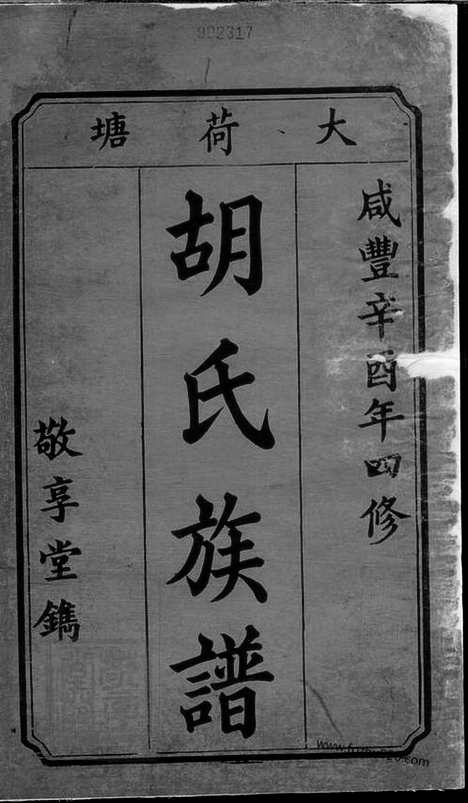 992317
大荷塘
咸豐辛酉年四修
胡氏族譜
敬享堂鐫